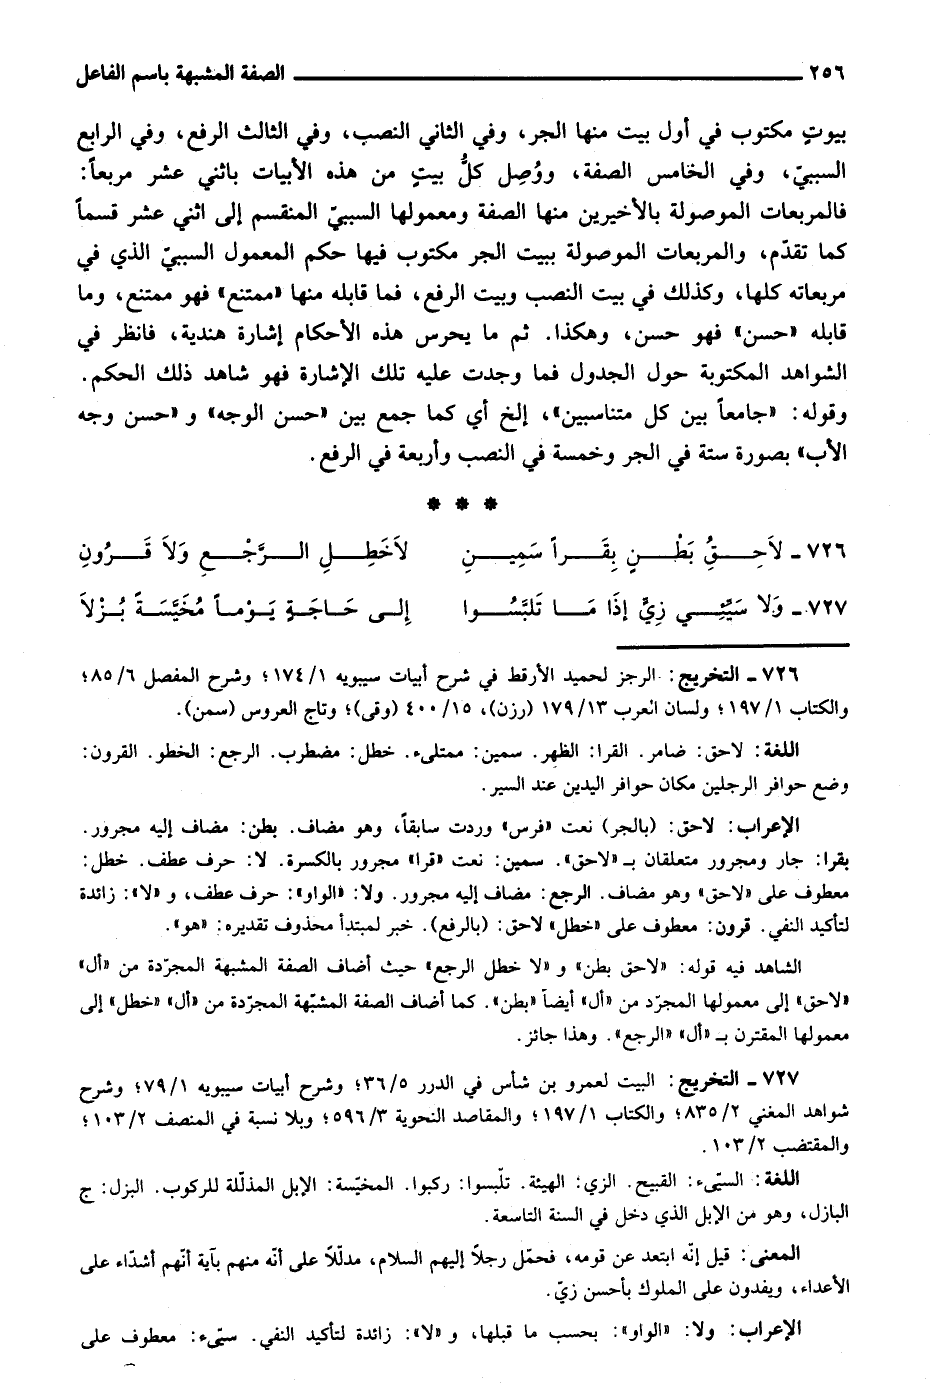 ٢٥٦ الصفة المشبهة باسم الفاعل
بيوتٍ مكتوب في أول بيت منها الجر، وفي الثاني النصب، وفي الثالث الرفع، وفي الرابع
السببيّ، وفي الخامس الصفة، ووُصِل كلُّ بيتٍ من هذه الأبيات باثني عشر مربعاً:
فالمربعات الموصولة بالأخيرين منها الصفة ومعمولها السببيّ المنقسم إلى اثني عشر قسماً
كما تقدّم، والمربعات الموصولة ببيت الجر مكتوب فيها حكم المعمول السببيّ الذي في
مربعاته كلها، وكذلك في بيت النصب وبيت الرفع، فما قابله منها «ممتنع» فهو ممتنع، وما
قابله «حسن» فهو حسن، وهكذا. ثم ما يحرس هذه الأحكام إشارة هندية، فانظر في
الشواهد المكتوبة حول الجدول فما وجدت عليه تلك الإشارة فهو شاهد ذلك الحكم.
وقوله: «جامعاً بين كل متناسبين»، إلخ أي كما جمع بين «حسن الوجه» و «حسن وجه
الأب» بصورة ستة في الجر وخمسة في النصب وأربعة في الرفع.
* * *
٧٢٦ ـ لاَحِقُ بَطْنٍ بِقَراً سَمِينِ لاَخَطِلِ الرَّجْعِ وَلاَ قَرُونِ
٧٢٧ ـ وَلا سَيِّئِي زِيٍّ إذَا مَا تَلَبَّسُوا إلى حَاجَةٍ يَوْماً مُخَيَّسَةً بُزْلاَ
٧٢٦ ـ التخريج: الرجز لحميد الأرقط في شرح أبيات سيبويه ١/ ١٧٤؛ وشرح المفصل ٦/ ٨٥؛
والكتاب ١/ ١٩٧؛ ولسان العرب ١٣/ ١٧٩ (رزن)، ١٥/ ٤٠٠ (وقى)؛ وتاج العروس (سمن).
اللغة: لاحق: ضامر. القرا: الظهر. سمين: ممتلىء. خطل: مضطرب. الرجع: الخطو. القرون:
وضع حوافر الرجلين مكان حوافر اليدين عند السير.
الإعراب: لاحق: (بالجر) نعت «فرس» وردت سابقاً، وهو مضاف. بطن: مضاف إليه مجرور.
بقرا: جار ومجرور متعلقان بـ «لاحق». سمين: نعت «قرا» مجرور بالكسرة. لا: حرف عطف. خطل:
معطوف على «لاحق» وهو مضاف. الرجع: مضاف إليه مجرور. ولا: «الواو»: حرف عطف، و «لا»: زائدة
لتأكيد النفي. قرون: معطوف على «خطل» لاحق: (بالرفع). خبر لمبتدأ محذوف تقديره: «هو».
الشاهد فيه قوله: «لاحق بطن» و «لا خطل الرجع» حيث أضاف الصفة المشبهة المجرّدة من «أل»
«لاحق» إلى معمولها المجرّد من «أل» أيضاً «بطن». كما أضاف الصفة المشبّهة المجرّدة من «أل» «خطل» إلى
معمولها المقترن بـ «أل» «الرجع». وهذا جائز.
٧٢٧ ـ التخريج: البيت لعمرو بن شأس في الدرر ٥/ ٣٦؛ وشرح أبيات سيبويه ١/ ٧٩؛ وشرح
شواهد المغني ٢/ ٨٣٥؛ والكتاب ١/ ١٩٧؛ والمقاصد النحوية ٣/ ٥٩٦؛ وبلا نسبة في المنصف ٢/ ١٠٣؛
والمقتضب ٢/ ١٠٣.
اللغة: السيّىء: القبيح. الزي: الهيئة. تلّبسوا: ركبوا. المخيّسة: الإبل المذلّلة للركوب. البزل: ج
البازل، وهو من الإبل الذي دخل في السنة التاسعة.
المعنى: قيل إنّه ابتعد عن قومه، فحمّل رجلاً إليهم السلام، مدلّلاً على أنّه منهم بآية أنّهم أشدّاء على
الأعداء، ويفدون على الملوك بأحسن زيّ.
الإعراب: ولا: «الواو»: بحسب ما قبلها، و «لا»: زائدة لتأكيد النفي. سيّىء: معطوف على